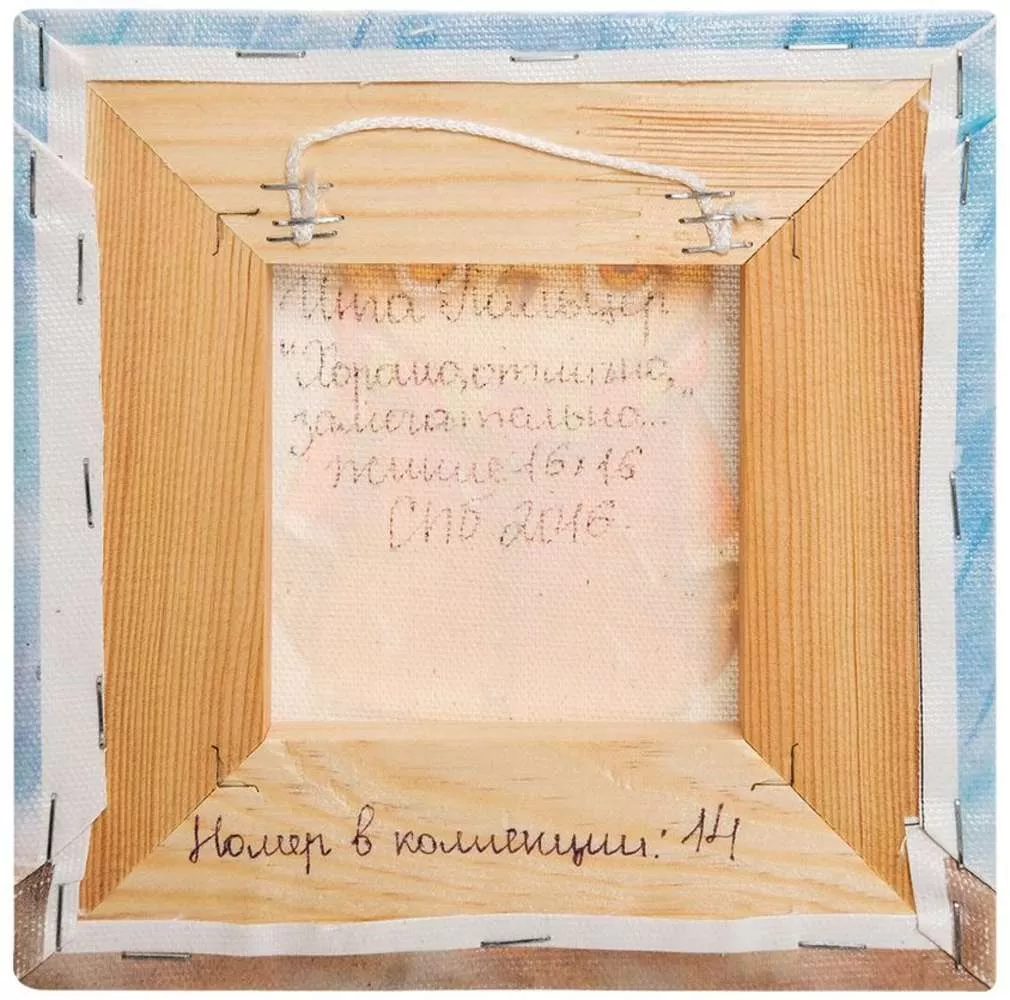 Инга Пальцер
"Хорошо, отлично,
замечательно..."
жикле 16х16
СПб 2016.
Номер в коллекции: 14